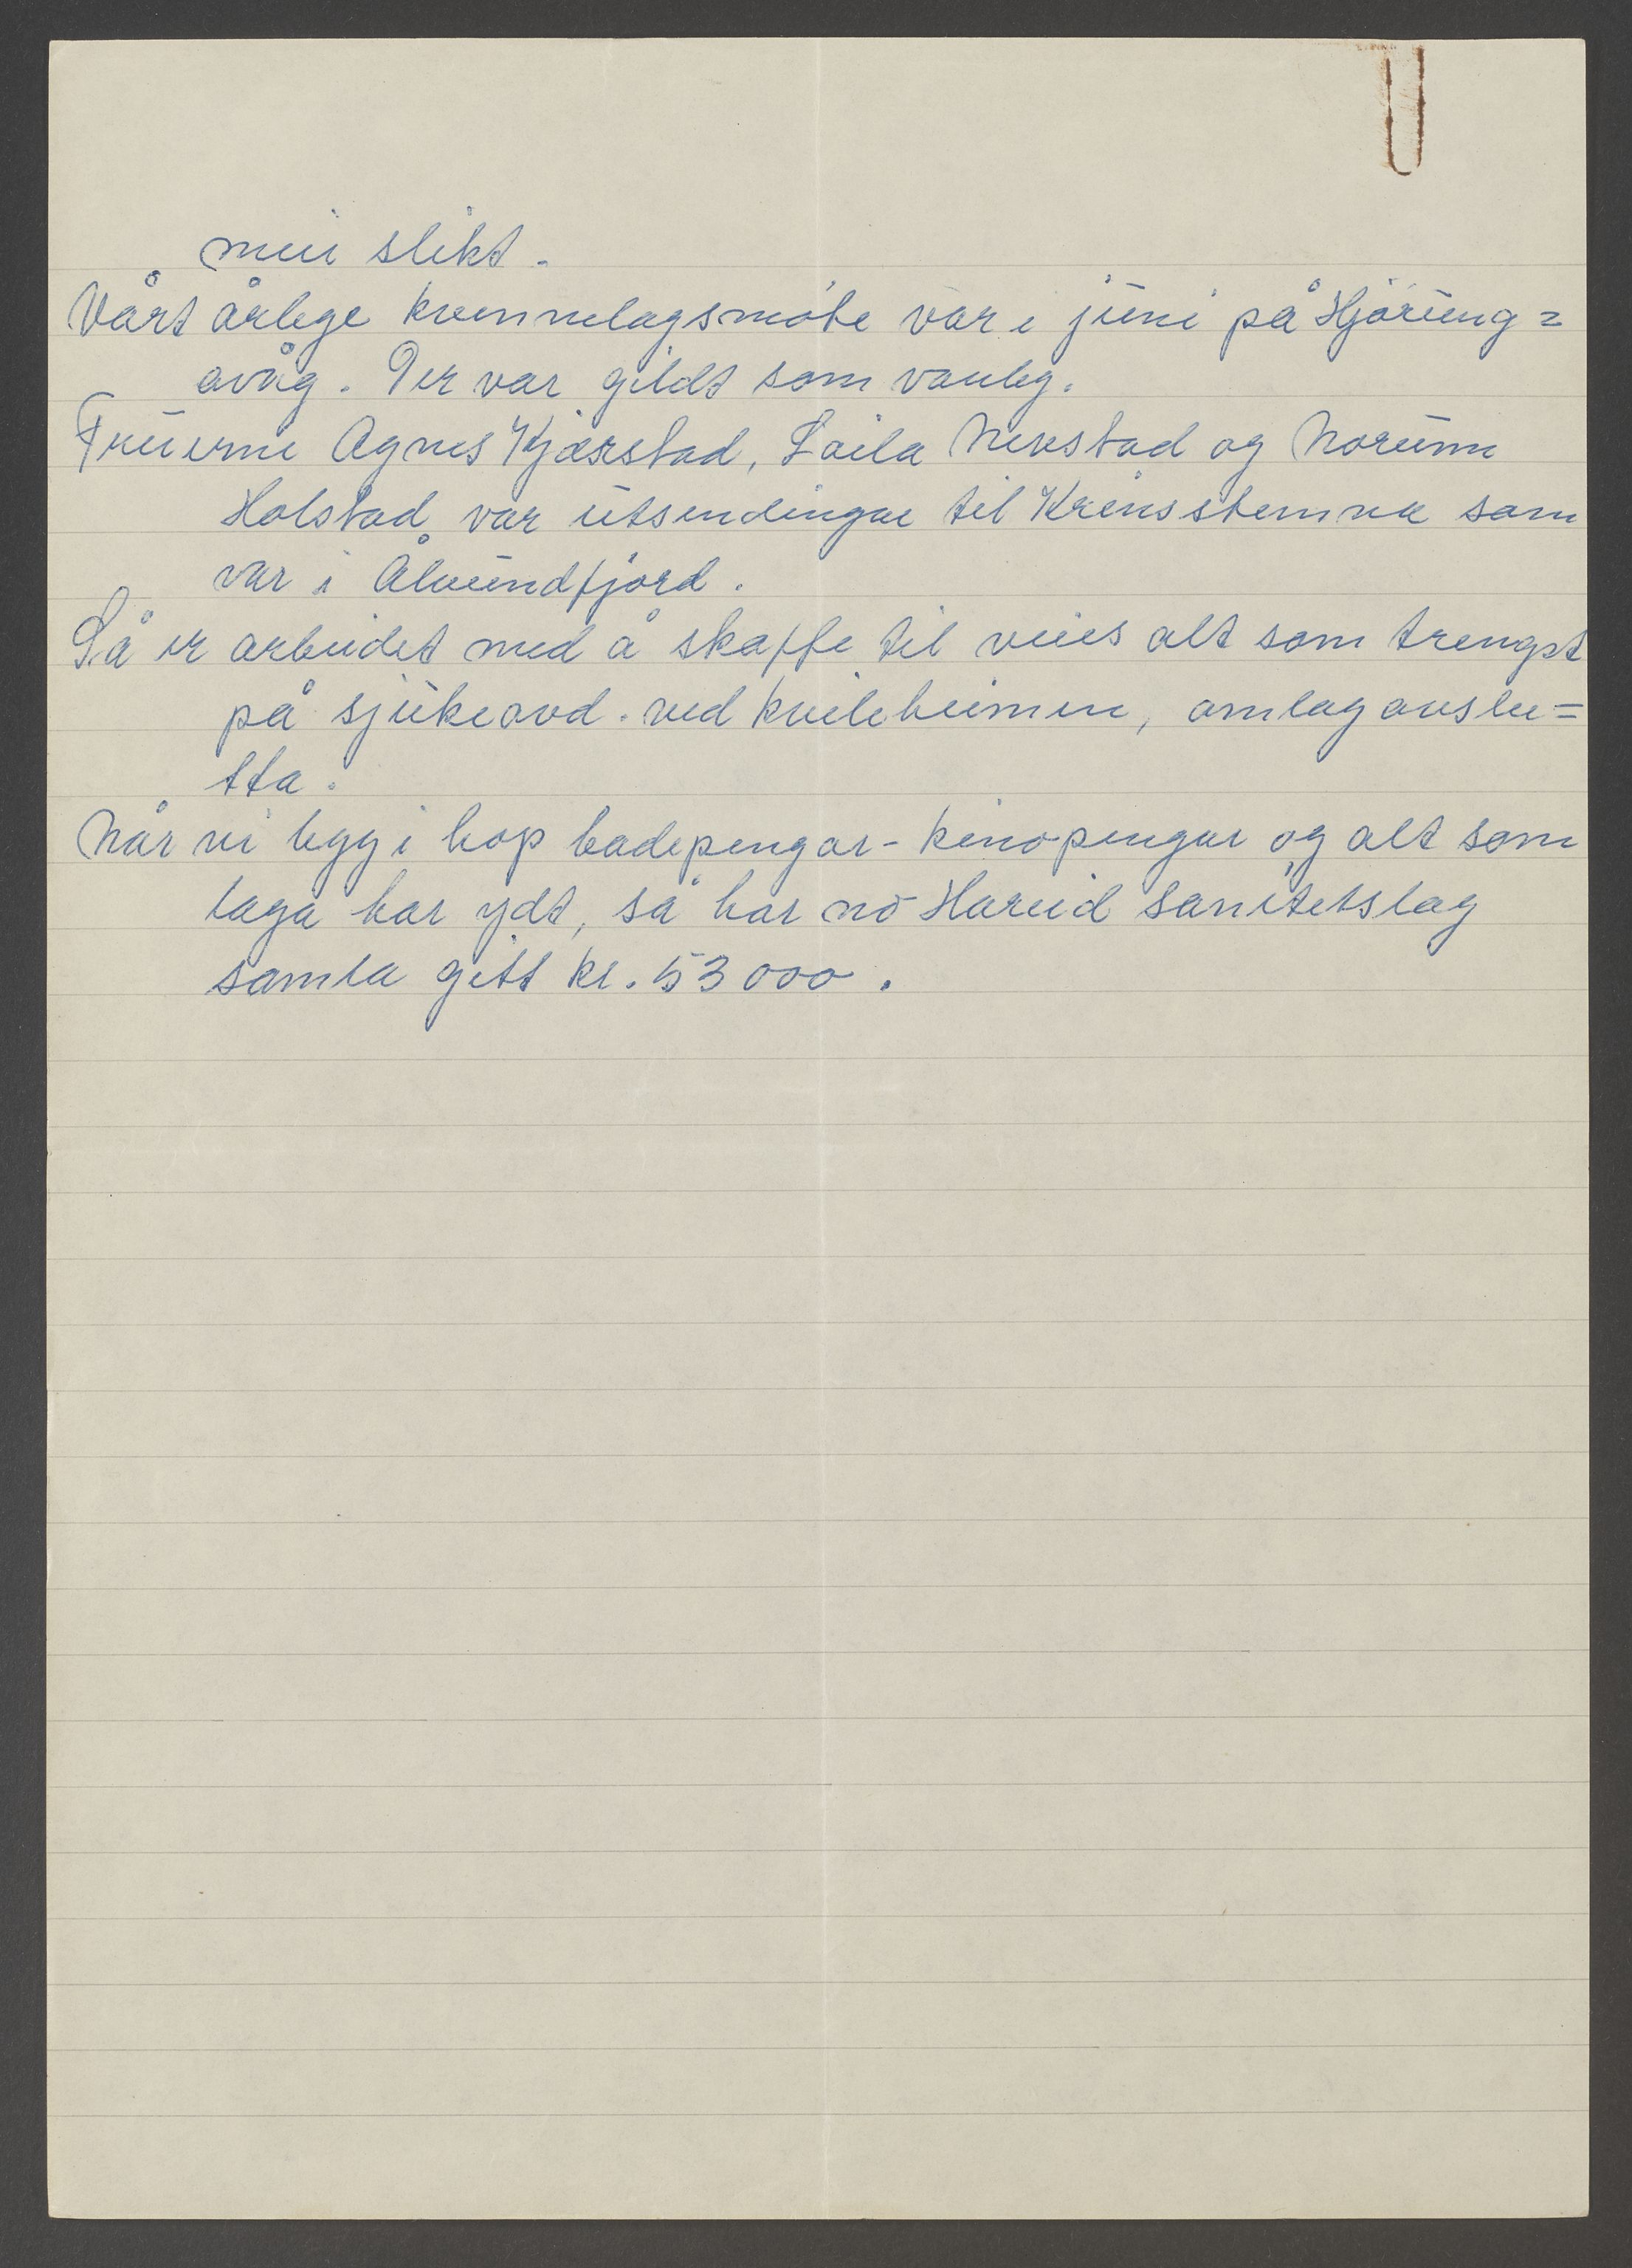 meir slikt.
Vårt årlege kvennelagsmøte var i juni på Hjørung=
avåg. Der var gildt som vanleg.
Fruerne Agnes Kjærstad, Laila Nerstad og Norunn
Holstad var utsendingar til Krinsstemna som
var i Ålvundfjord.
Så er arbeidet med å skaffe til veies alt som trengst
på sjukeavd. ved kvileheimen, omlag avslu=
tta.
Når vi legg i hop badepengar - kinopengar og alt som
laga har ydt, så har no Hareid Sanitetslag
samla gitt kr. 53000.